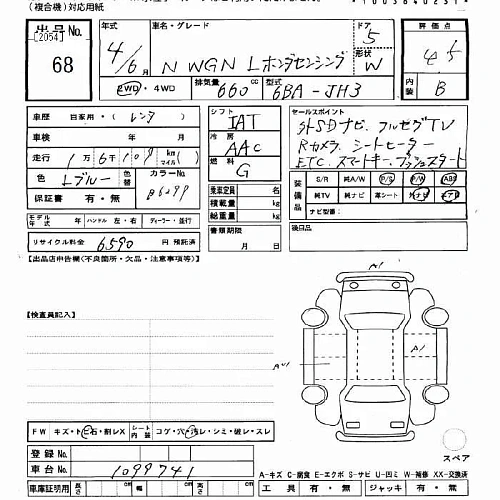 (複合機)対応用紙
出品No. 年式 車名・グレード ドア 評価点
[2054] 4/6月 N WGN Lホンダセンシング 5 4.5
68 形状 W 内装 B
2WD・4WD 排気量 660 cc 型式 6BA-JH3
車歴 自家用・(レンタ) シフト IAT セールスポイント
車検 年 月 冷房 AAC 外SDナビ、フルセグTV
走行 1万6千109 km マイル 燃料 G Rカメラ、シートヒーター
色 Lブルー 色替 カラーNo. ETC、スマートキー、プッシュスタート
保証書 有・無 乗車定員 名 装備品 S/R 純A/W P/S P/W ABS
モデル年式 年 ハンドル 左・右 ディーラー・並行 積載量 kg 純TV 純ナビ 革シート 外ナビ エアB
総重量 kg ナビ型番:
リサイクル料金 6590 円 預託済 書類期限 月 日 後日品
【出品店申告欄(不良箇所・欠品・注意事項等)】
【検査員記入】
A1
A1
FW キズ・ト・石・割レX シート内装 コゲ・穴・汚レ・シミ・破レ・スレ
登録No.
スペア
車台No. 1099741
A-キズ C-腐食 E-エクボ S-サビ U-凹ミ W-補修 XX-交換済
車庫証明用 長さ cm 幅 cm 高さ cm 工具 有・無 ジャッキ 有・無